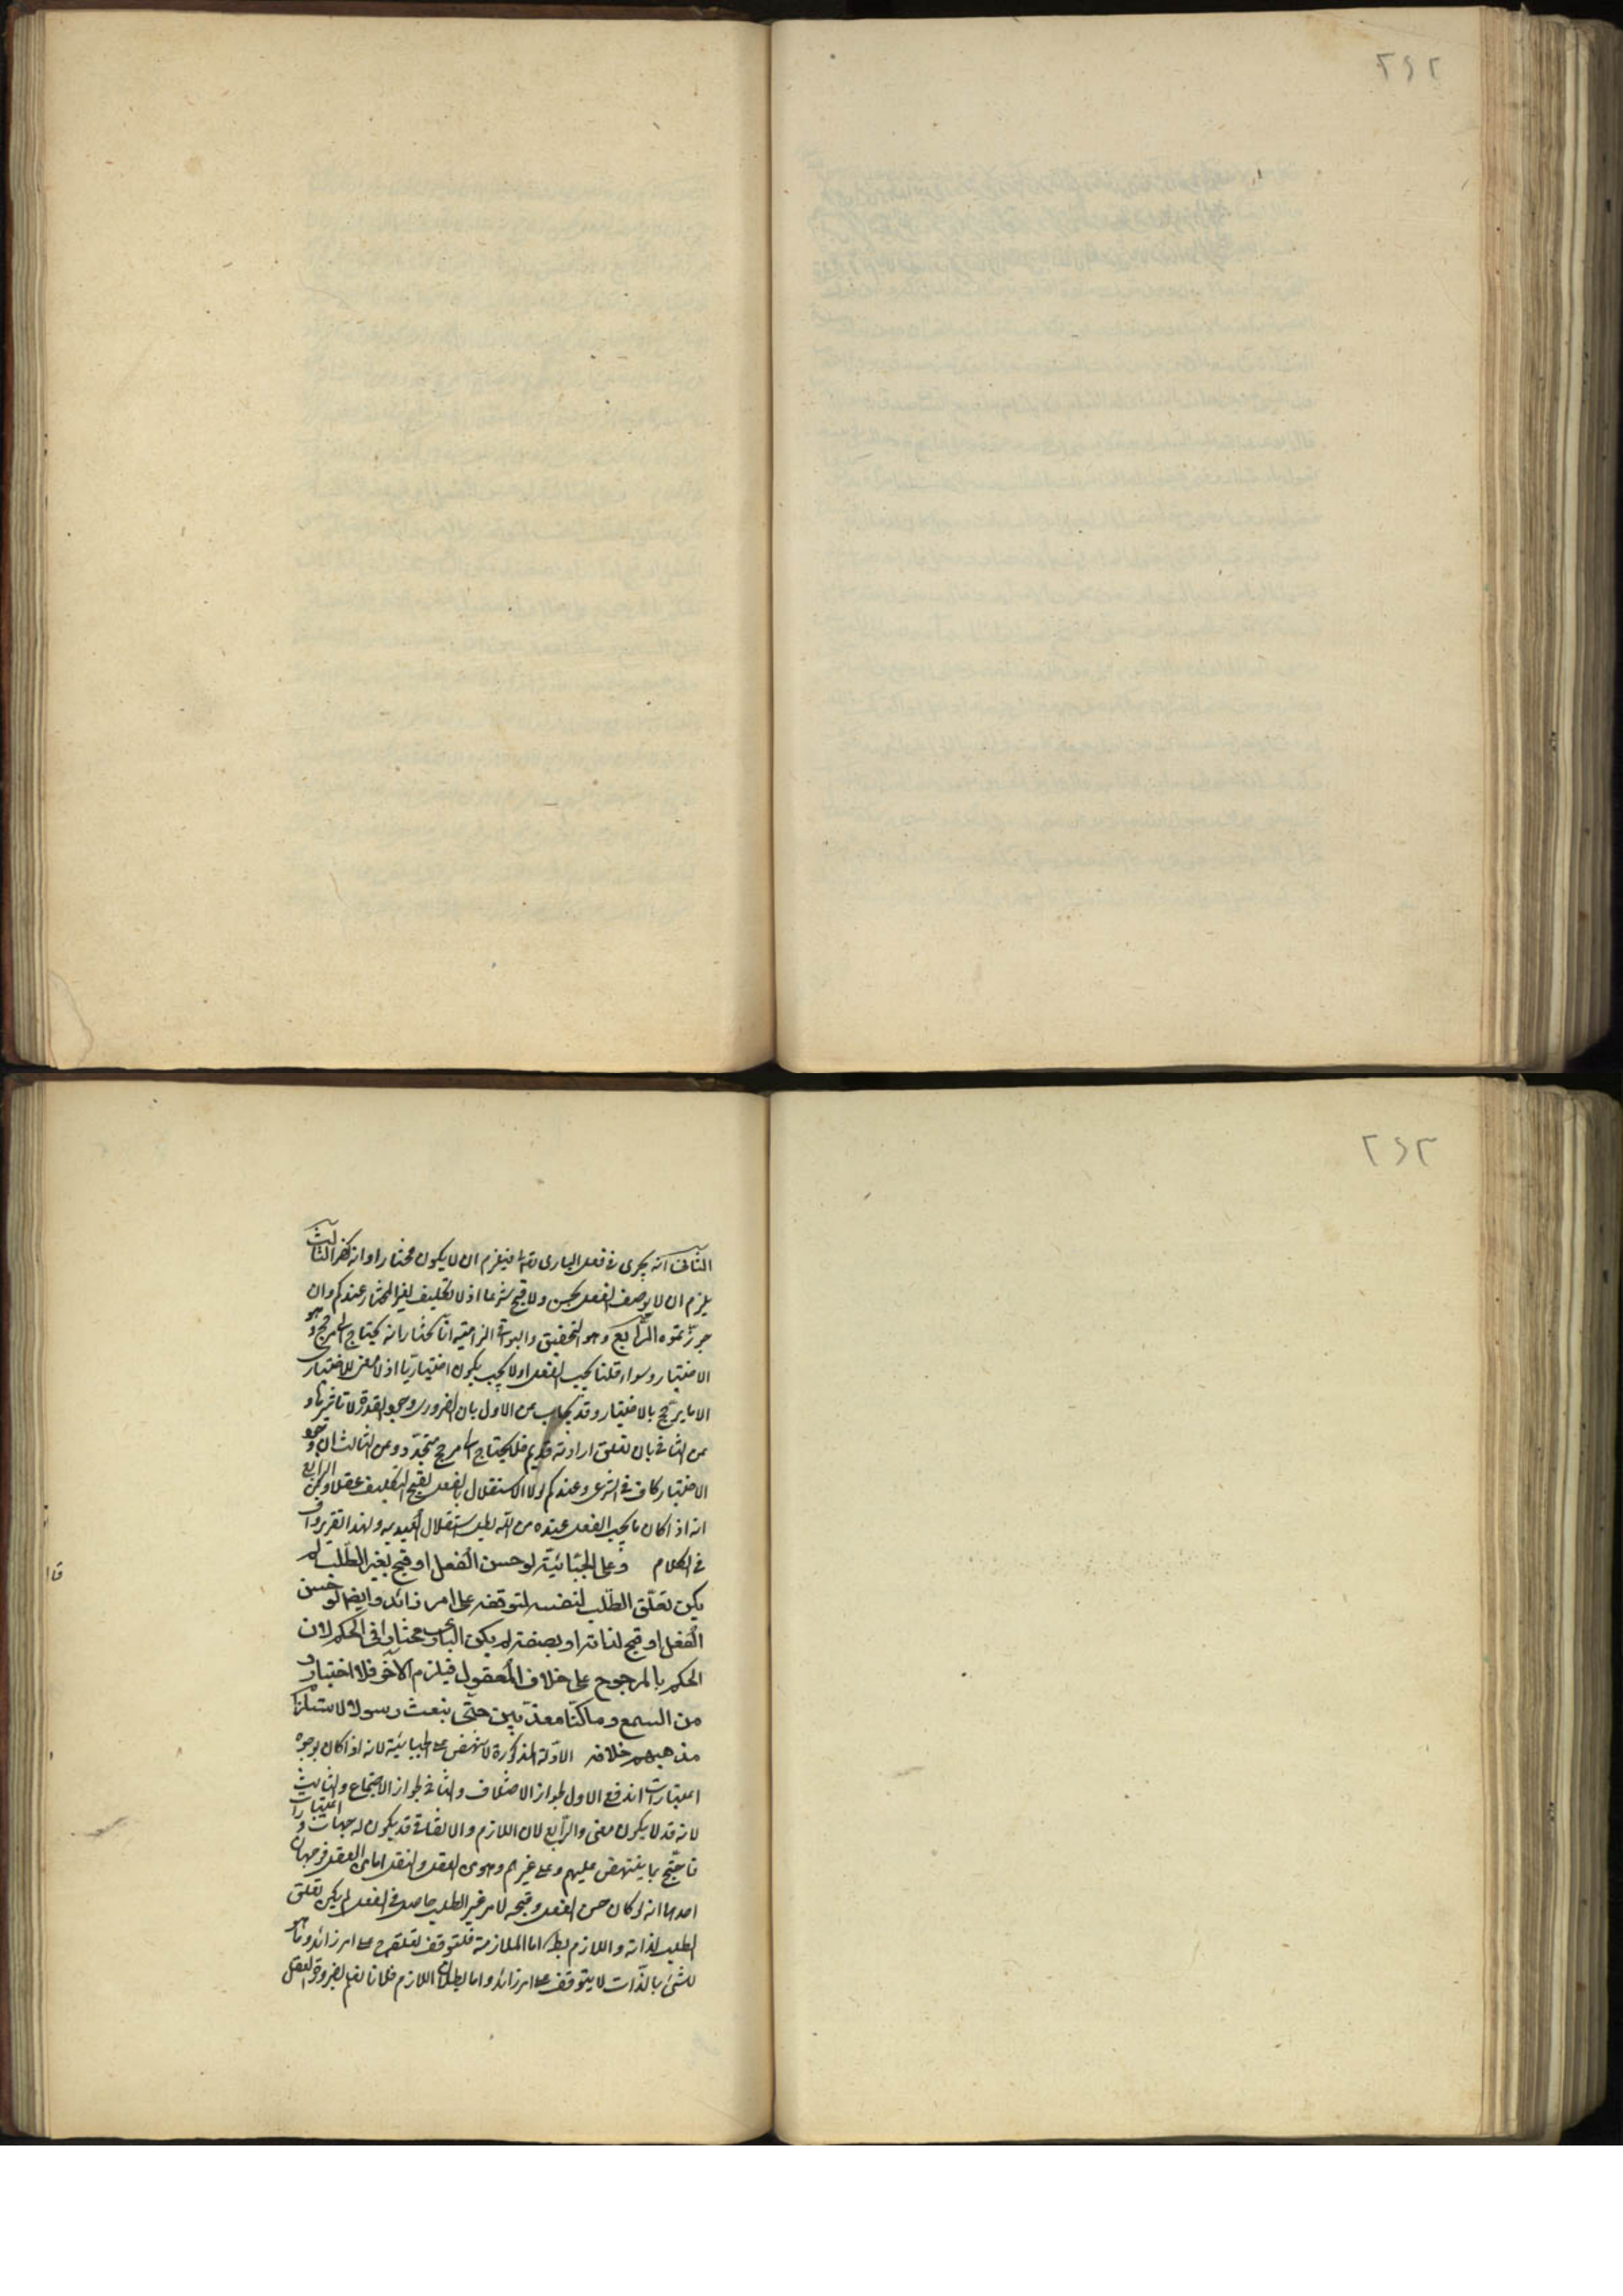 ٢٤٢
٢٤٣
الثانى انه يجرى فى فعل البارى تعه فيلزم ان لا يكون مختارا وانه كفر الثالث
يلزم ان لا يوصف الفعل بحسن ولا قبح شرعا اذ لا تكليف لغير المختار عندكم وان
جوزتموه الرابع وهو التحقيق والبواقى الزامية انا نختار انه يحتاج الى مرجح وهو
الاختيار وسواء قلنا يجب الفعل او لا يجب يكون اختياريا اذ لا معنى للاختيارى
الا ما يرجح بالاختيار وقد يجاب عن الاول بان الضرورى وجود القدرة لا تاثيرها و
عن الثانى بان تعلق ارادته قديم فلا يحتاج الى مرجح متجدد وعن الثالث ان وجود
الاختيار كاف فى الشرعى وعندكم لولا الاستقلال بالفعل لقبح التكليف عقلا وعن الرابع
انه اذا كان ما يجب الفعل عنده من الله بطل استقلال العبد به ولهذا تقرير واف
فى الكلام وعلى الجبائية لو حسن الفعل او قبح لغير الطلب لم
يكن تعلق الطلب لنفسه لتوقفه على امر زائد وايضا لو حسن
الفعل او قبح لذاته او بصفته لم يكن البارى مختارا فى الحكم لان
الحكم بالمرجوح على خلاف المعقول فيلزم الآخر فلا اختيار و
من السمع وما كنا معذبين حتى نبعث رسولا لاستلزام
مذهبهم خلافه الادلة المذكورة لا تنهض على الجبائية لانه اذا كان بوجوه
اعتبارات اندفع الاول لجواز الاختلاف والثانى لجواز الاجتماع والثالث
لانه قد لا يكون معنى والرابع لان اللازم والاتفاقى قد يكون له جهات واعتبارات
فاحتج بما ينتهض عليهم وعلى غيرهم وهو من العقل والنقل اما من العقل فوجهان
احدهما انه لو كان حسن الفعل وقبحه لامر غير الطلب حاصل فى الفعل لم يكن تعلق
الطلب لذاته واللازم بط اما الملازمة فلتوقف تعلقه ح على امر زائد وما هو
للشئ بالذات لا يتوقف على امر زائد واما بطلان اللازم فلانا نعلم بضرورة العقل
قا